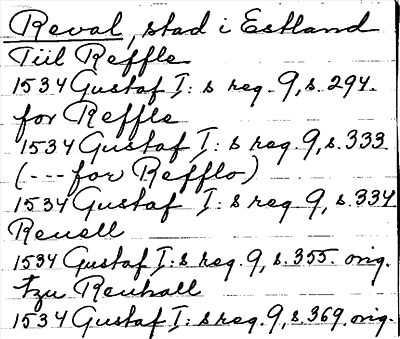 Reval, stad i Estland
Tiil Reffle
1534 Gustaf I: s reg. 9, s. 294.
for Reffle
1534 Gustaf I: s reg. 9, s. 333
(--- for Refflo)
1534 Gustaf I: s reg. 9, s. 334
Reuell
1534 Gustaf I: s reg. 9, s. 355. orig.
tzu Reuhall
1534 Gustaf I: s reg. 9, s. 369. orig.